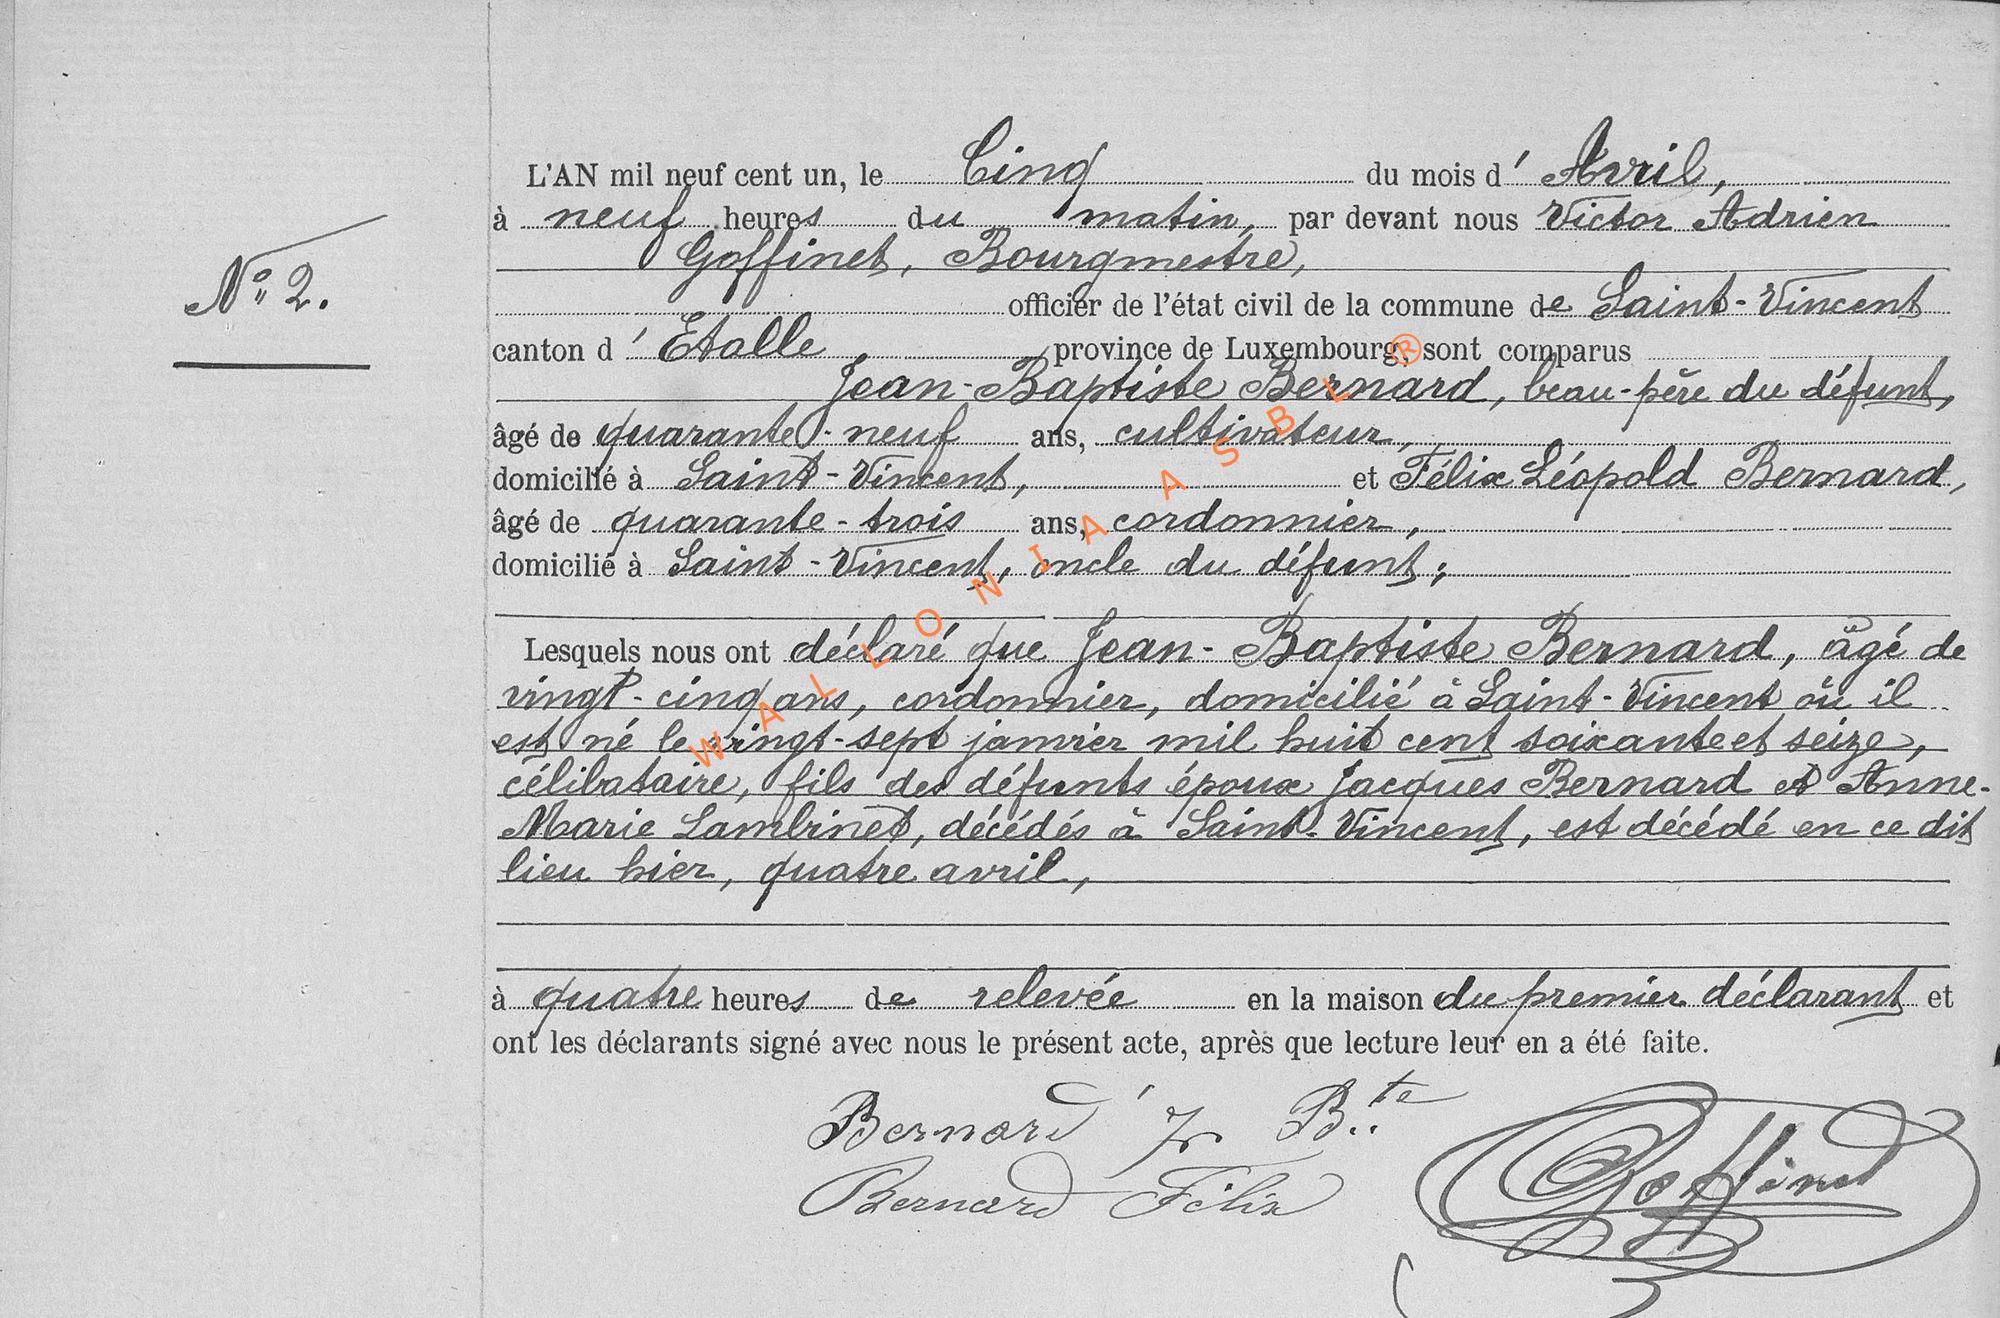 L'AN mil neuf cent un, le Cinq du mois d' Avril,
à neuf heures du matin, par devant nous Victor Adrien
Goffinet, Bourgmestre,
N° 2.
officier de l'état civil de la commune de Saint-Vincent
canton d' Etalle, province de Luxembourg, sont comparus
Jean-Baptiste Bernard, beau-père du défunt,
âgé de quarante-neuf ans, cultivateur,
domicilié à Saint-Vincent, et Félix Léopold Bernard,
âgé de quarante-trois ans, cordonnier,
domicilié à Saint-Vincent, oncle du défunt;
Lesquels nous ont déclaré que Jean-Baptiste Bernard, âgé de
vingt-cinq ans, cordonnier, domicilié à Saint-Vincent où il
est né le vingt-sept janvier mil huit cent soixante et seize,
célibataire, fils des défunts époux Jacques Bernard et Anne-
Marie Lambinet, décédés à Saint-Vincent, est décédé en ce dit
lieu hier, quatre avril,
à quatre heures de relevée en la maison du premier déclarant et
ont les déclarants signé avec nous le présent acte, après que lecture leur en a été faite.
Bernard J B.te
Bernard Félix
Goffinet
WALLONIA ASBL ®